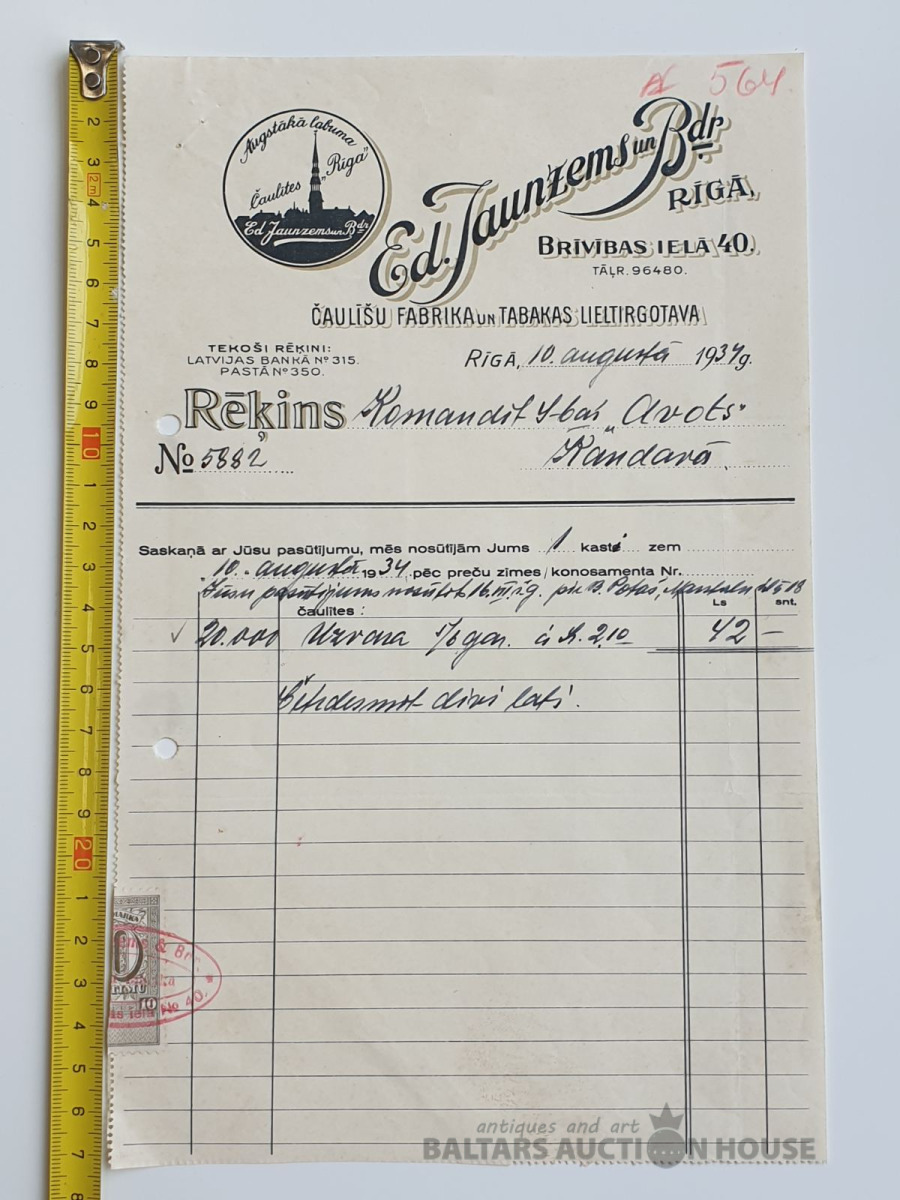 № 564.
Augstākā labuma
Čaulītes „Rīga”
Ed. Jaunzems un Bdr.
Ed. Jaunzems un Bdr.
RĪGĀ,
BRĪVĪBAS IELĀ 40.
TĀĻR. 96480.
ČAULĪŠU FABRIKA UN TABAKAS LIELTIRGOTAVA
TEKOŠI RĒĶINI:
LATVIJAS BANKĀ № 315.
PASTĀ № 350.
RĪGĀ, 10. augustā 1934 g.
Rēķins Komandit S-bai „Avots”
№ 5882 Kandavā.
Saskaņā ar Jūsu pasūtījumu, mēs nosūtījām Jums 1 kasti zem
10. augustā 1934 pēc preču zīmes / konosamenta Nr.
Jūsu pasūtijums nosūtot 16. III š.g. pie
čaulītes : Ls snt.
20.000 Uzvara á Ls. 2,10 42 —
Četrdesmit divi lati.
MARKA
10
& Br
ielā No 40.
antiques and art
BALTARS AUCTION HOUSE
2 3 2m 4 5 6 7 8 9 10 1 2 3 4 5 6 7 8 9 20 1 2 3 4 5 6 7 8